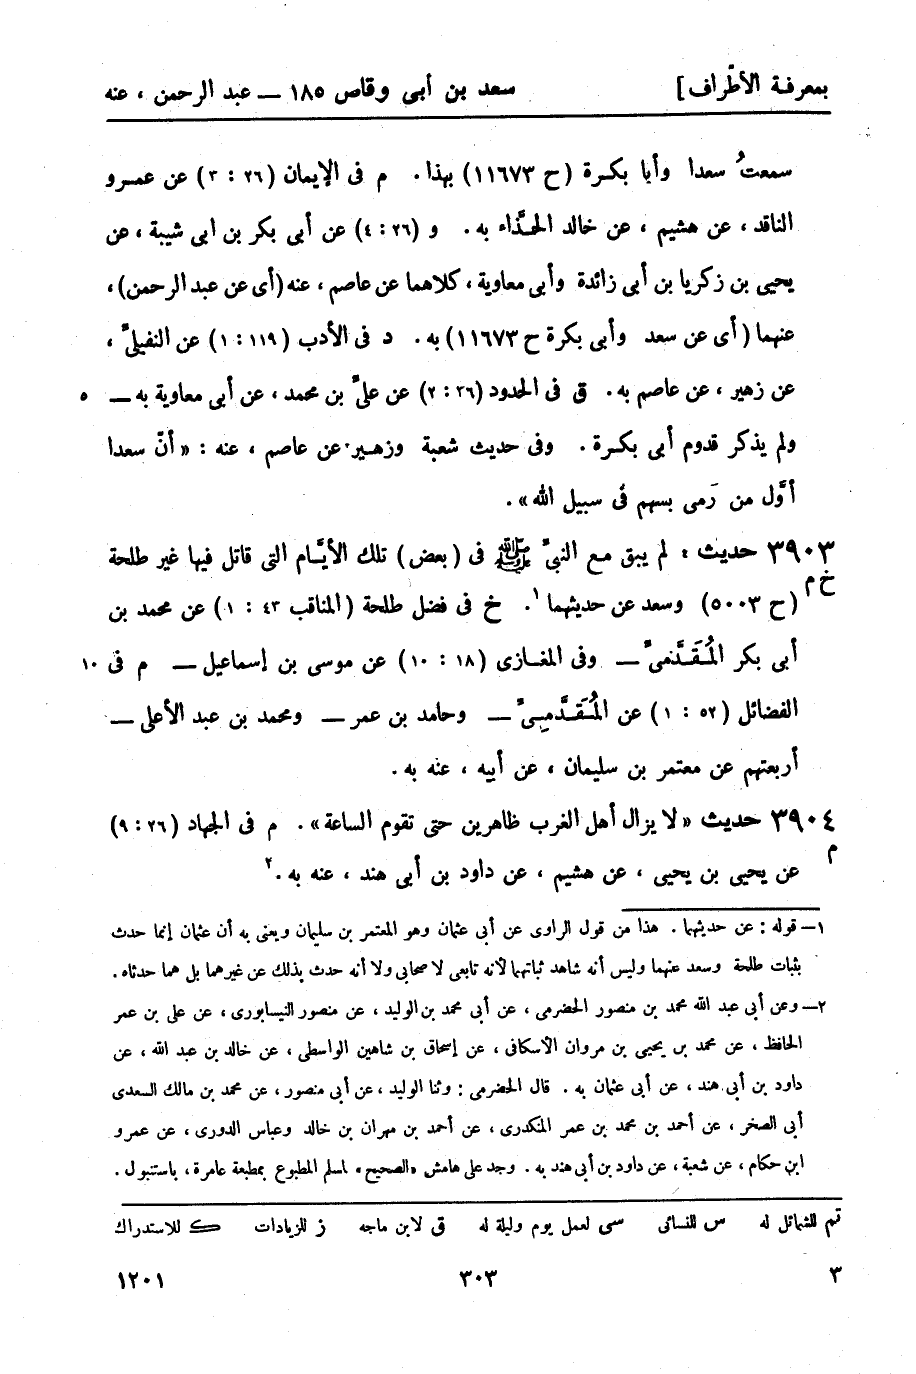 بمعرفة الأطراف] سعد بن أبى وقاص ١٨٥ — عبد الرحمن ، عنه
سمعتُ سعدا وأبا بكرة (ح ١١٦٧٣) بهذا. م فى الإيمان (٢٦ : ٣) عن عمرو
الناقد ، عن هشيم ، عن خالد الحذَّاء به. و (٢٦ : ٤) عن أبى بكر بن ابى شيبة ، عن
يحيى بن زكريا بن أبى زائدة وأبى معاوية ، كلاهما عن عاصم ، عنه (أى عن عبد الرحمن) ،
عنهما (أى عن سعد وأبى بكرة ح ١١٦٧٣) به. د فى الأدب (١١٩ : ١) عن النفيلىّ ،
عن زهير ، عن عاصم به. ق فى الحدود (٣٦ : ٢) عن علىّ بن محمد ، عن أبى معاوية به — ٥
ولم يذكر قدوم أبى بكرة. وفى حديث شعبة وزهير عن عاصم ، عنه : «أنّ سعدا
أوَّل من رَمى بسهم فى سبيل الله».
٣٩٠٣ حديث : لم يبق مع النبىّ ﷺ فى (بعض) تلك الأيَّام التى قاتل فيها غير طلحة
خ م (ح ٥٠٠٣) وسعد عن حديثهما ١. خ فى فضل طلحة (المناقب ٤٣ : ١) عن محمد بن
أبى بكر المُقَدَّمىّ — وفى المغازى (١٨ : ١٠) عن موسى بن إسماعيل — م فى ١٠
الفضائل (٥٢ : ١) عن المُقَدَّمِىّ — وحامد بن عمر — ومحمد بن عبد الأعلى —
أربعتهم عن معتمر بن سليمان ، عن أبيه ، عنه به.
٣٩٠٤ حديث «لا يزال أهل الغرب ظاهرين حتى تقوم الساعة». م فى الجهاد (٢٦ : ٩)
م عن يحيى بن يحيى ، عن هشيم ، عن داود بن أبى هند ، عنه به. ٢
١ — قوله : عن حديثهما. هذا من قول الراوى عن أبى عثمان وهو المعتمر بن سليمان ويعنى به أن عثمان إنما حدث
بثبات طلحة وسعد عنهما وليس أنه شاهد ثباتهما لأنه تابعى لا صحابى ولا أنه حدث بذلك عن غيرهما بل هما حدثاه.
٢ — وعن أبى عبد الله محمد بن منصور الحضرمى ، عن أبى محمد بن الوليد ، عن منصور النيسابورى ، عن على بن عمر
الحافظ ، عن محمد بن يحيى بن مروان الاسكافى ، عن إسحاق بن شاهين الواسطى ، عن خالد بن عبد الله ، عن
داود بن أبى هند ، عن أبى عثمان به. قال الحضرمى : وثنا الوليد ، عن أبى منصور ، عن محمد بن مالك السعدى
أبى الصخر ، عن أحمد بن محمد بن عمر المنكدرى ، عن أحمد بن مهران بن خالد وعباس الدورى ، عن عمرو
ابن حكام ، عن شعبة ، عن داود بن أبى هند به. وجد على هامش «الصحيح» لمسلم المطبوع بمطبعة عامرة ، باستنبول.
تم للشمائل له س للنسائى سى لعمل يوم وليلة له ق لابن ماجه ز للزيادات ك للاستدراك
٣ ٣٠٣ ١٢٠١